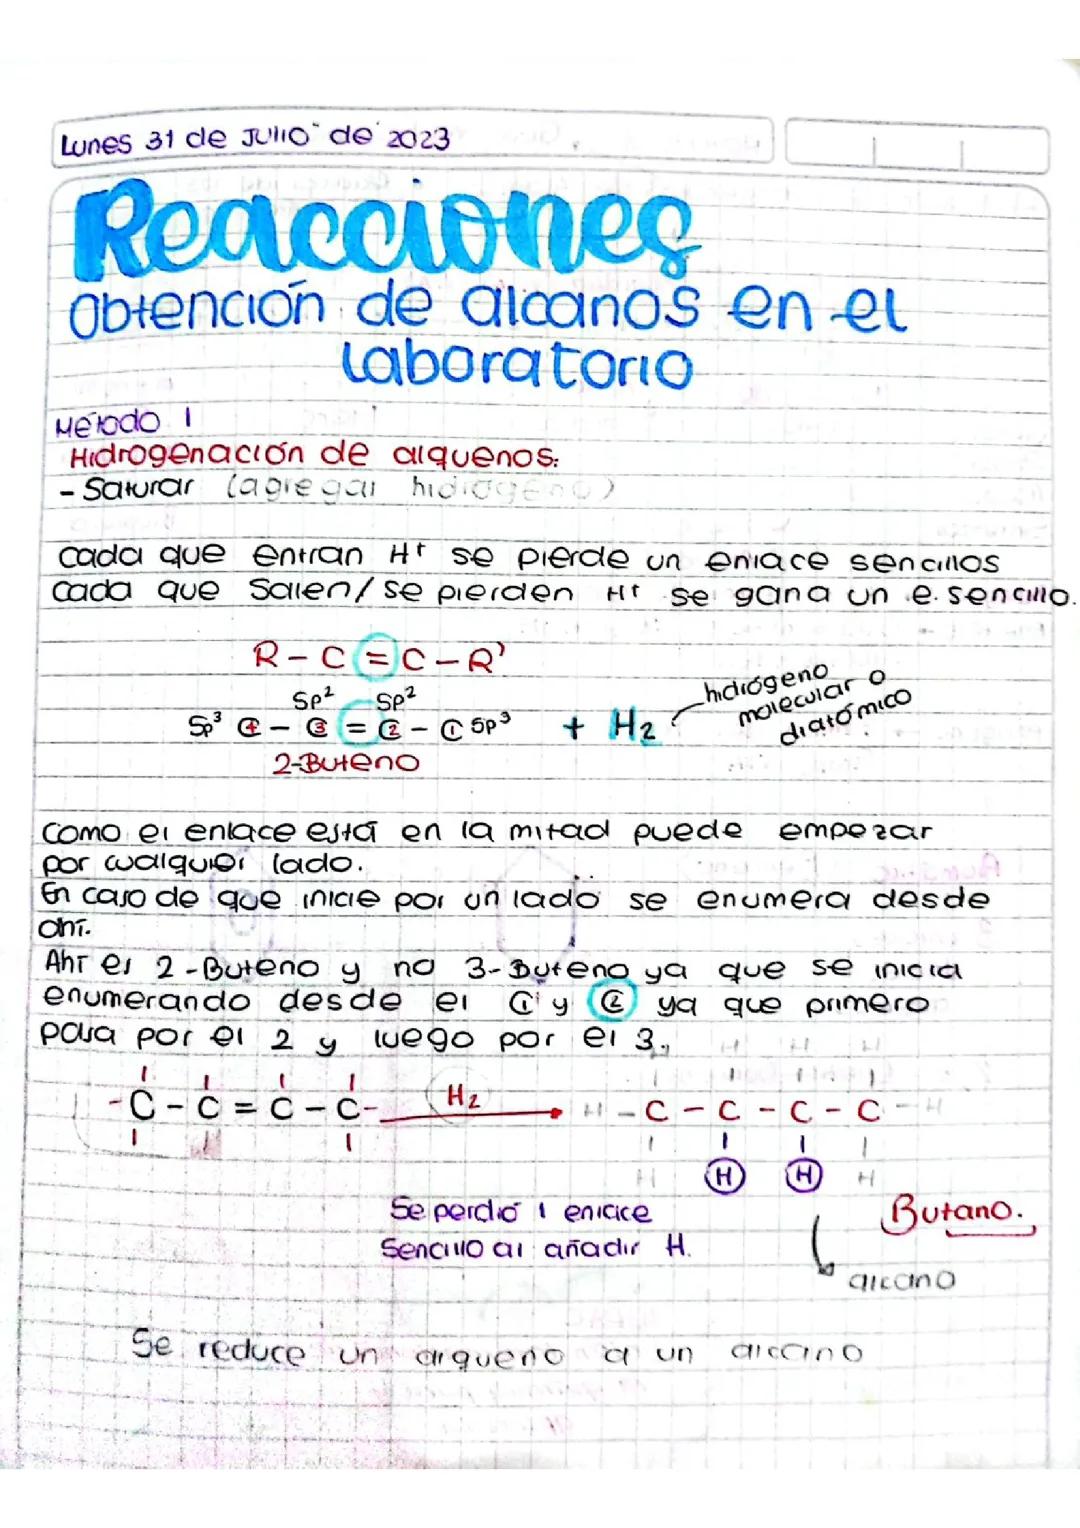 Lunes 31 de Julio de 2023
Reacciones
Obtención de alcanos en el
Laboratorio
Método 1
Hidrogenación de alquenos:
- Saturar (agregar hidrógeno)
cada que entran H+ se pierde un enlace sencillos
cada que salen/se pierden H+ se gana un e. sencillo.
R - C = C - R'
Sp² Sp²
Sp³ C4 - C3 = C2 - C1 Sp³ + H₂
hidrógeno
molecular o
diatómico
2-Buteno
Como el enlace está en la mitad puede empezar
por cualquier lado.
En caso de que inicie por un lado se enumera desde
ahí.
Ahí es 2-Buteno y no 3-Buteno ya que se inicia
enumerando desde el C1 y C2 ya que primero
pasa por el 2 y luego por el 3.
H H H
- C - C = C - C - H₂ → H - C - C - C - C - H
H H H H
Se perdió 1 enlace
Sencillo al añadir H.
Butano.
alcano
Se reduce un alqueno a un alcano